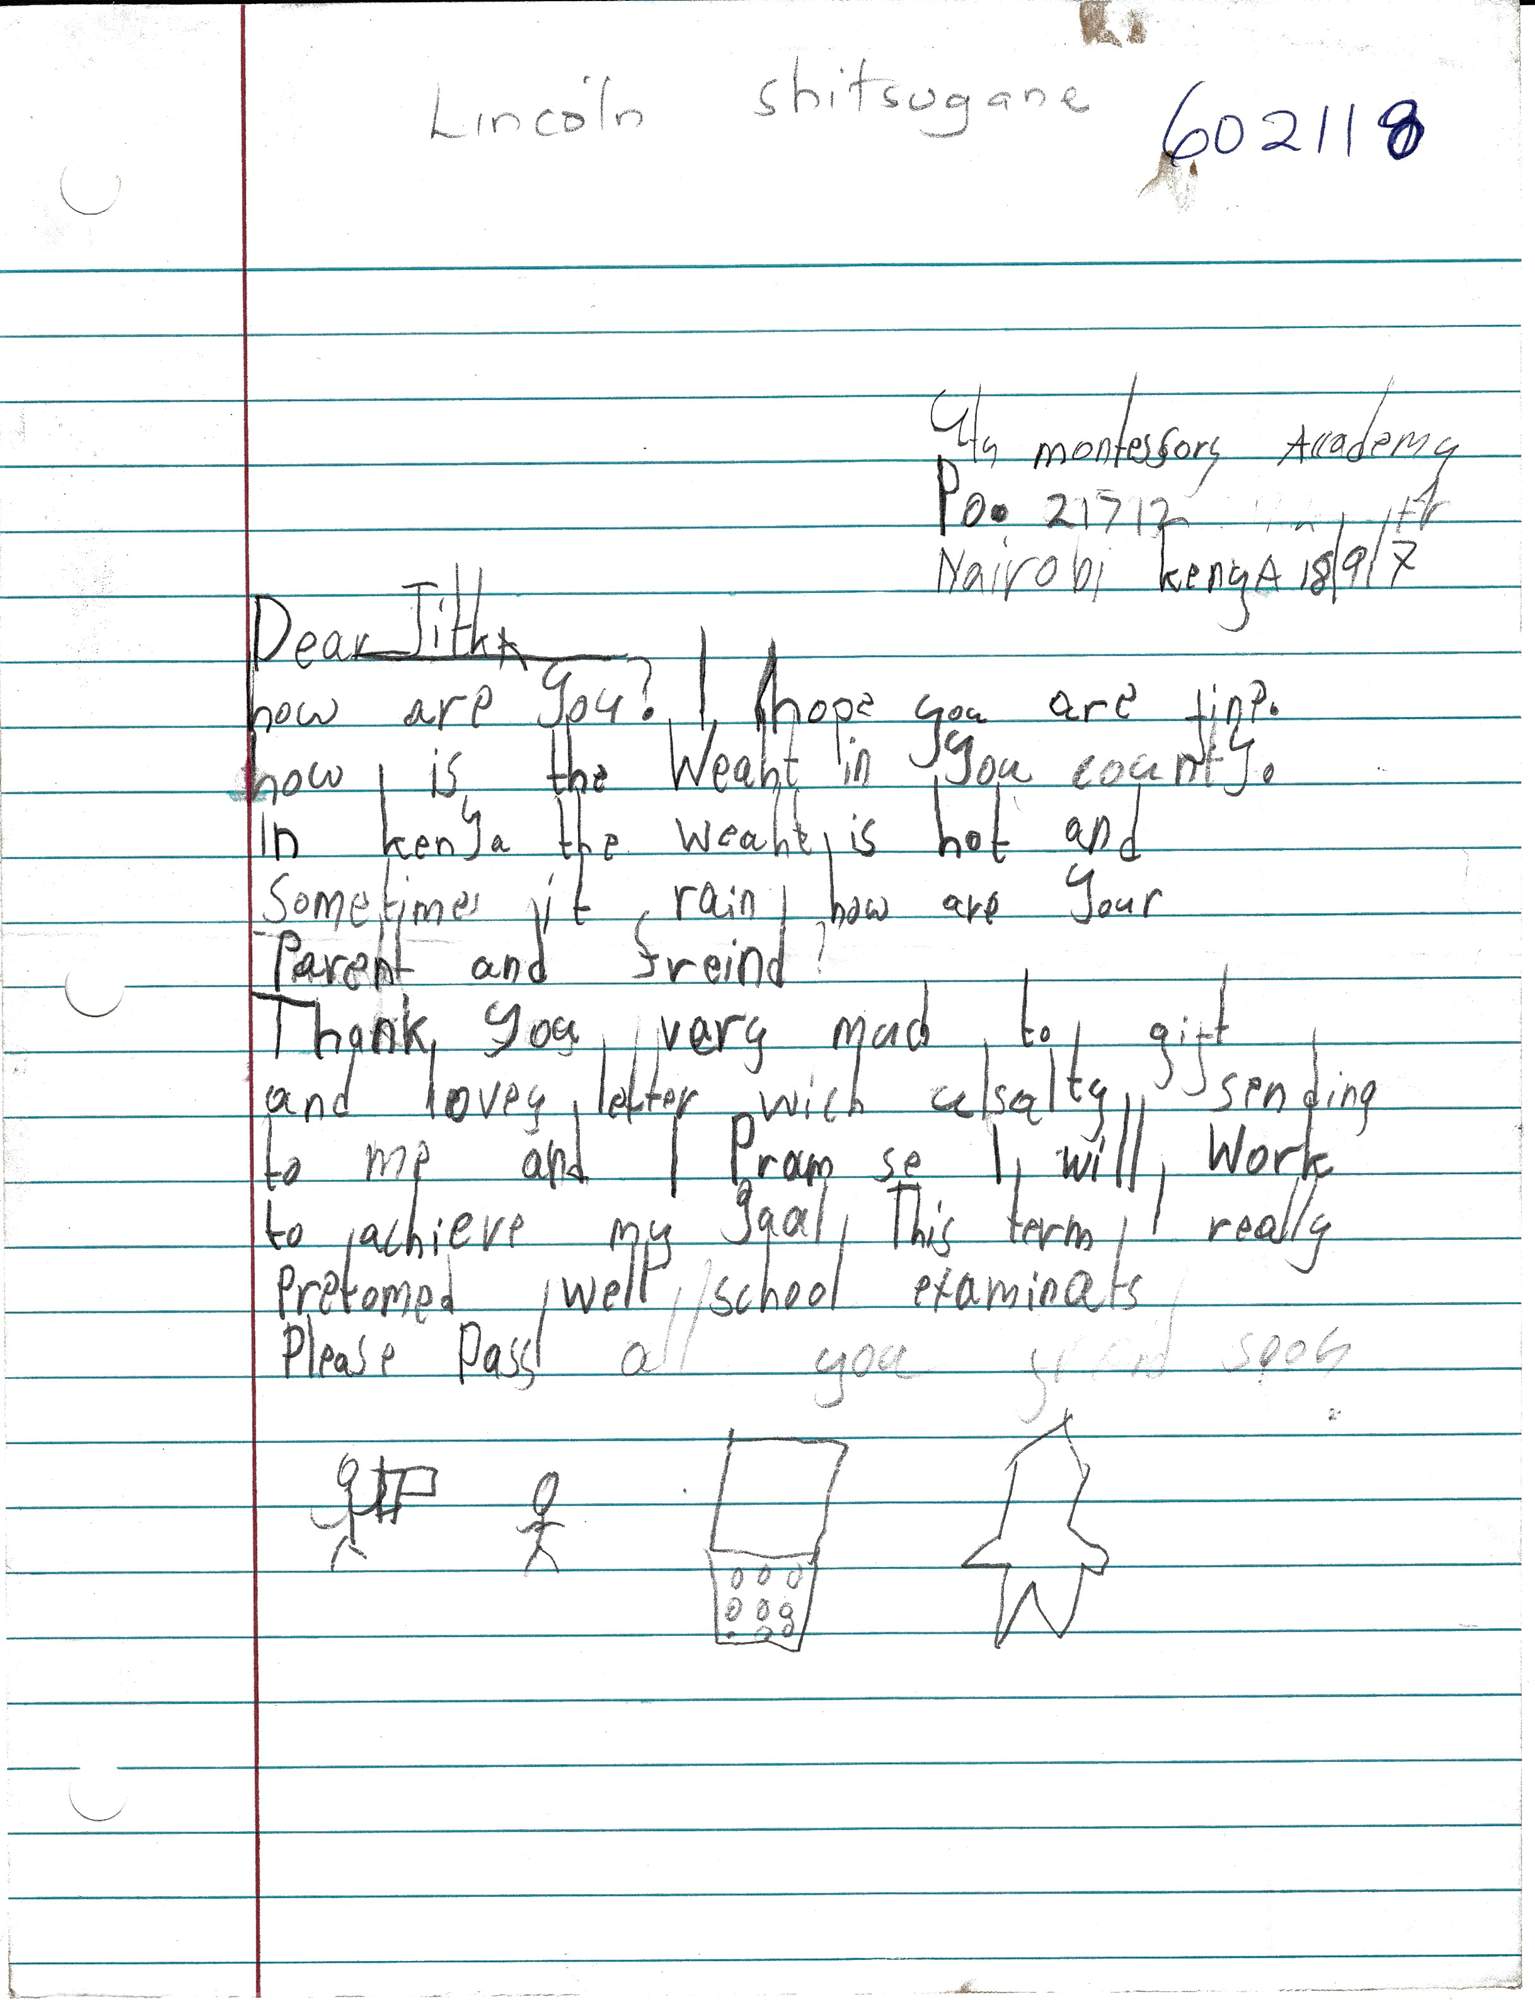 Lincoln shitsugane 602118
montessory Accademy
Po. 21712
Nairobi kenyA 18/9/7
Dear Jitka
how are you? I hope you are fine.
how is the Weaht in you county.
In kenya the weaht is hot and
Sometimes it rain how are your
Parent and freind?
Thank you very mach to gift
and lovey letter wich alsalty sending
to me and I Pramse I will Work
to achieve my goal This term I really
Prefomed well school examinats
Please Pass all you